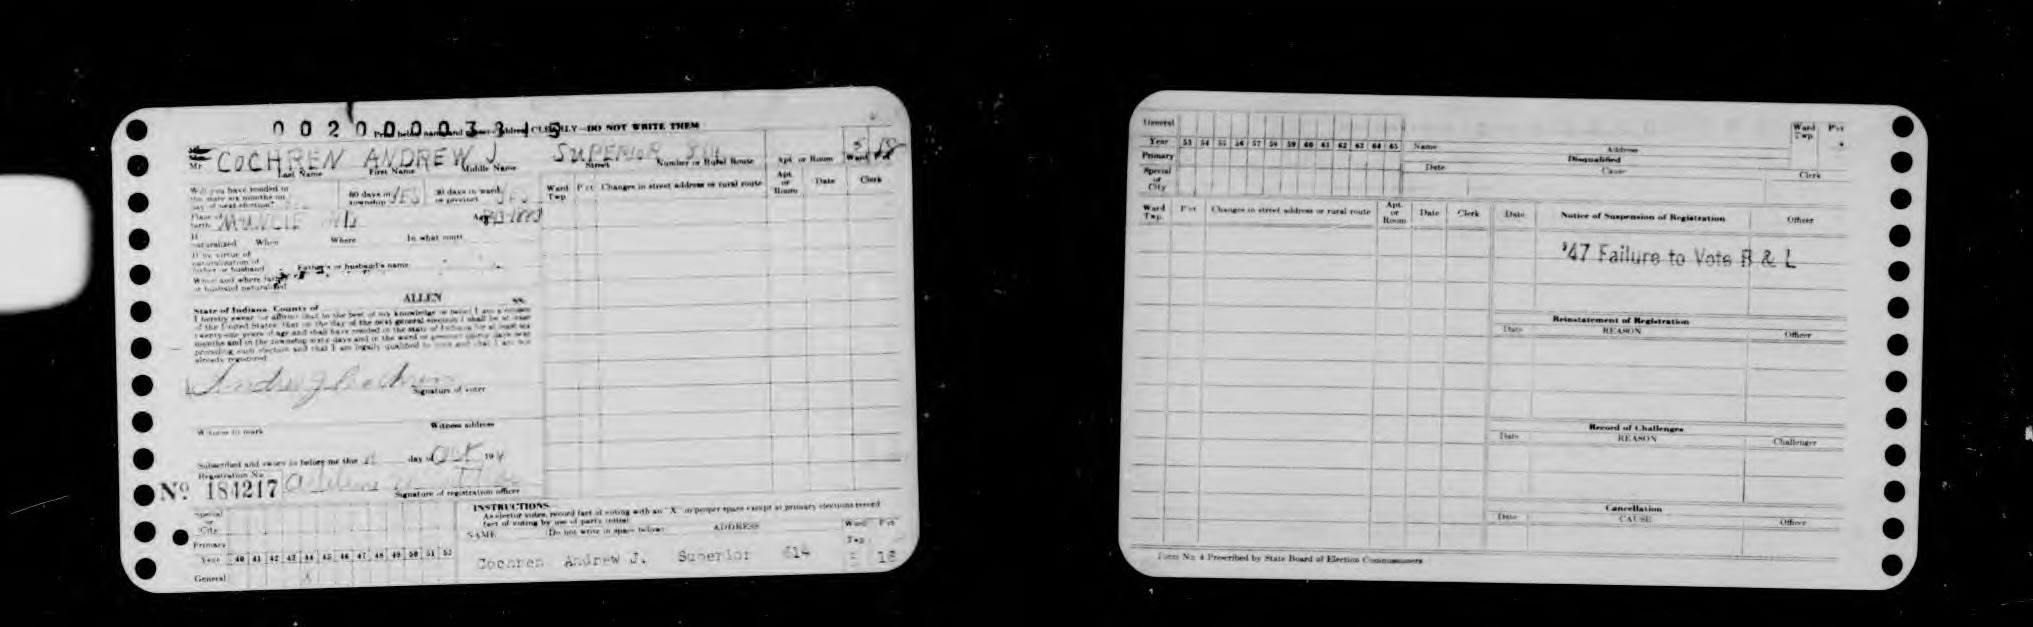 0 0 2 0 0 0 0 3 3 1 5
CLEARLY—DO NOT WRITE THEM
Mr. COCHREN ANDREW J. SUPERIOR 5 18
Last Name First Name Middle Name Street Number or Rural Route Apt. or Room Ward
Will you have resided in the state six months on day of next election?
60 days in township YES 30 days in ward or precinct YES
Ward Twp. Pct Changes in street address or rural route Apt. or Room Date Clerk
Place of birth MUNCIE IND
If naturalized When Where In what court
If by virtue of naturalization of father or husband Father's or husband's name
When and where father or husband naturalized
ALLEN
State of Indiana, County of ss.
I hereby swear (or affirm) that to the best of my knowledge or belief I am a citizen
of the United States, that on the day of the next general election I shall be at least
twenty-one years of age and shall have resided in the state of Indiana for at least six
months and in the township sixty days and in the ward or precinct thirty days next
preceding such election and that I am legally qualified to vote and that I am not
already registered
Andrew J Cochren
Signature of voter
Witness to mark Witness address
Subscribed and sworn to before me this day of Oct 194
Registration No.
Nº 184217
Signature of registration officer
Special or City
Primary
Year 40 41 42 43 44 45 46 47 48 49 50 51 52
General X
INSTRUCTIONS
As elector votes, record fact of voting with an "X" in proper space except at primary elections record
fact of voting by use of party initial
NAME (Do not write in space below) ADDRESS Ward Twp. Pct
Cochren Andrew J. Superior 614 5 18
General
Year 53 54 55 56 57 58 59 60 61 62 63 64 65
Primary
Special or City
Name Address Ward Twp. Pct
Disqualified
Date Cause Clerk
Ward Twp. Pct Changes in street address or rural route Apt. or Room Date Clerk
Date Notice of Suspension of Registration Officer
'47 Failure to Vote R & L
Reinstatement of Registration
Date REASON Officer
Record of Challenges
Date REASON Challenger
Cancellation
Date CAUSE Officer
Form No. 4 Prescribed by State Board of Election Commissioners